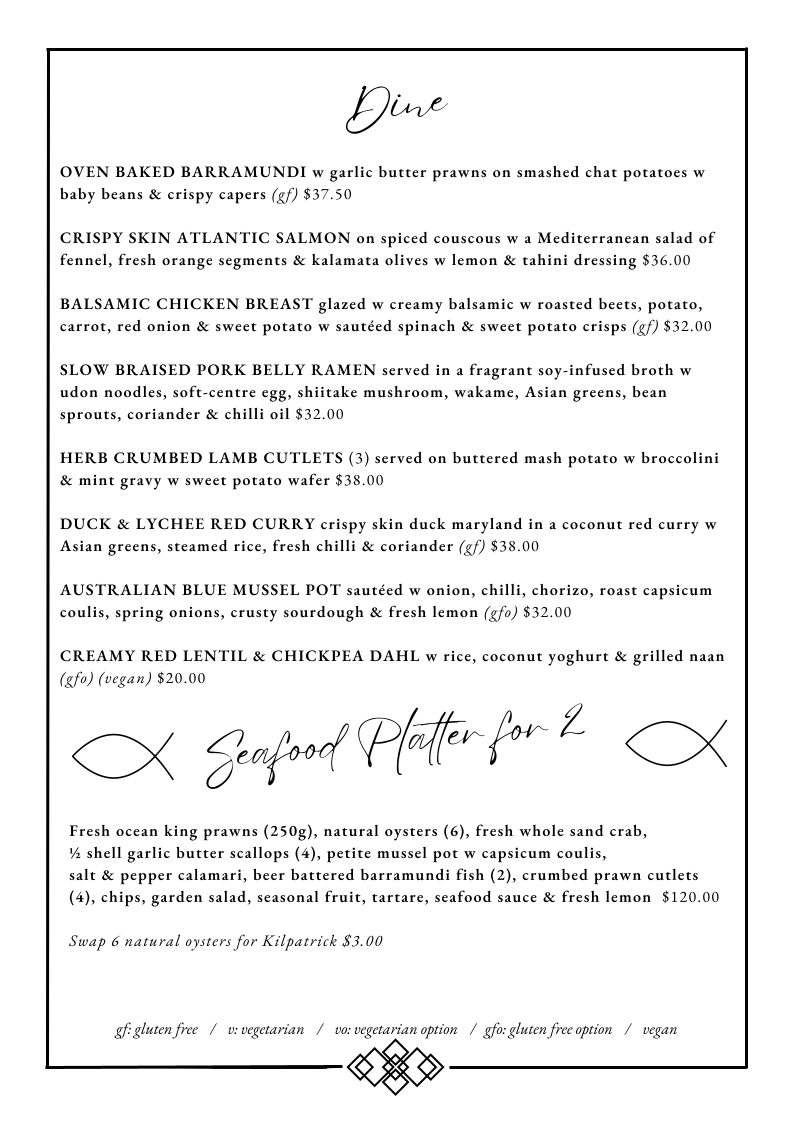 Dine
OVEN BAKED BARRAMUNDI w garlic butter prawns on smashed chat potatoes w
baby beans & crispy capers (gf) $37.50
CRISPY SKIN ATLANTIC SALMON on spiced couscous w a Mediterranean salad of
fennel, fresh orange segments & kalamata olives w lemon & tahini dressing $36.00
BALSAMIC CHICKEN BREAST glazed w creamy balsamic w roasted beets, potato,
carrot, red onion & sweet potato w sautéed spinach & sweet potato crisps (gf) $32.00
SLOW BRAISED PORK BELLY RAMEN served in a fragrant soy-infused broth w
udon noodles, soft-centre egg, shiitake mushroom, wakame, Asian greens, bean
sprouts, coriander & chilli oil $32.00
HERB CRUMBED LAMB CUTLETS (3) served on buttered mash potato w broccolini
& mint gravy w sweet potato wafer $38.00
DUCK & LYCHEE RED CURRY crispy skin duck maryland in a coconut red curry w
Asian greens, steamed rice, fresh chilli & coriander (gf) $38.00
AUSTRALIAN BLUE MUSSEL POT sautéed w onion, chilli, chorizo, roast capsicum
coulis, spring onions, crusty sourdough & fresh lemon (gfo) $32.00
CREAMY RED LENTIL & CHICKPEA DAHL w rice, coconut yoghurt & grilled naan
(gfo) (vegan) $20.00
Seafood Platter for 2
Fresh ocean king prawns (250g), natural oysters (6), fresh whole sand crab,
½ shell garlic butter scallops (4), petite mussel pot w capsicum coulis,
salt & pepper calamari, beer battered barramundi fish (2), crumbed prawn cutlets
(4), chips, garden salad, seasonal fruit, tartare, seafood sauce & fresh lemon $120.00
Swap 6 natural oysters for Kilpatrick $3.00
gf: gluten free / v: vegetarian / vo: vegetarian option / gfo: gluten free option / vegan